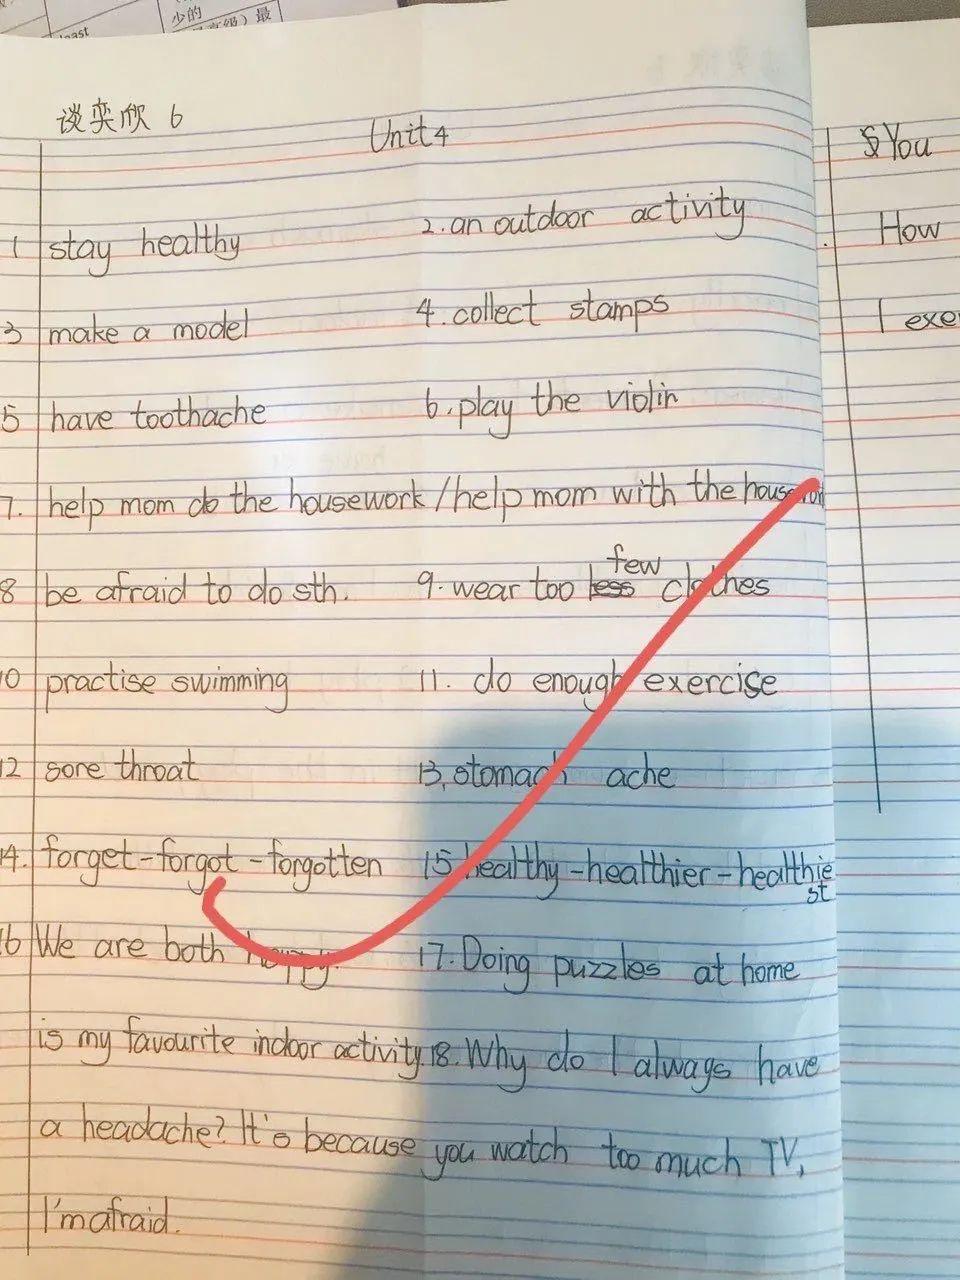 少的
最
谈奕欣 6
Unit 4
1 stay healthy 2. an outdoor activity
3 make a model 4. collect stamps
5 have toothache 6. play the violin
7. help mom do the housework / help mom with the housework
8 be afraid to do sth. 9. wear too few clothes
10 practise swimming 11. do enough exercise
12 sore throat 13. stomach ache
14. forget - forgot - forgotten 15 healthy - healthier - healthiest
16 We are both happy. 17. Doing puzzles at home
is my favourite indoor activity. 18. Why do I always have
a headache? It's because you watch too much TV,
I'm afraid.
You
How
I